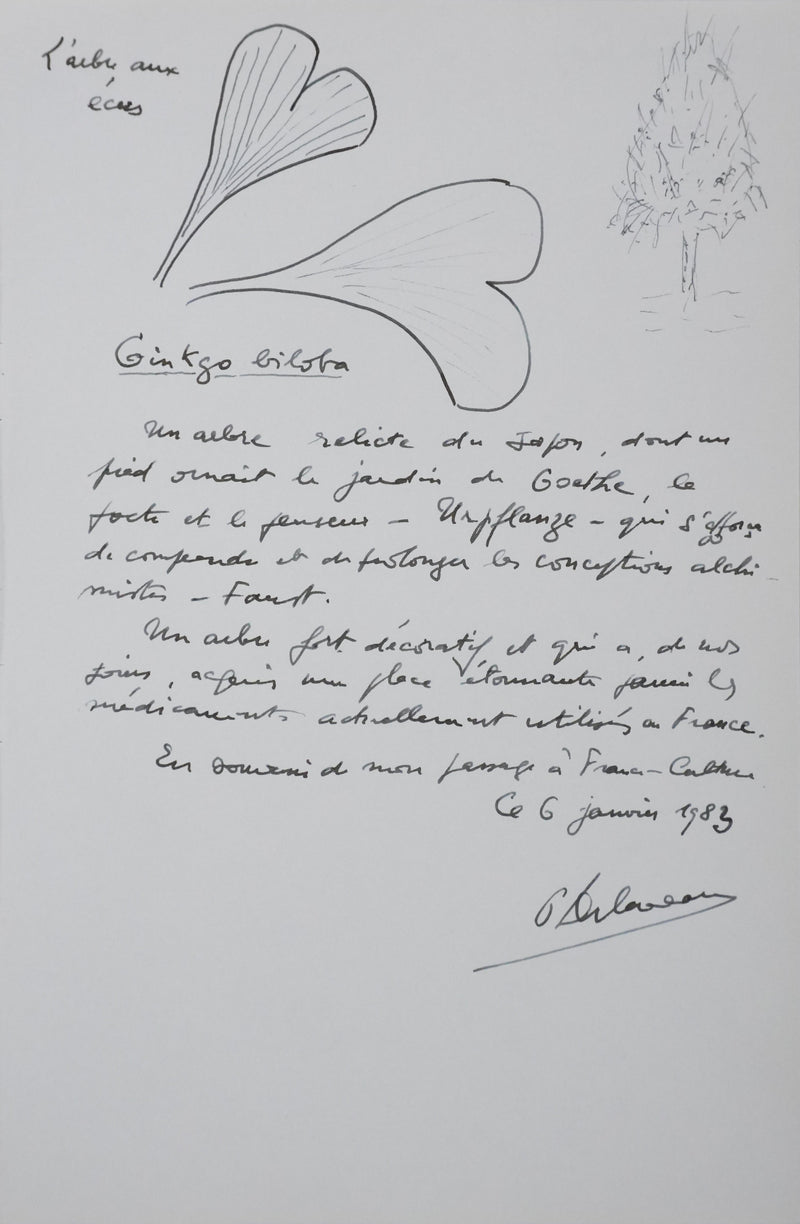 L'arbre aux
écus
Ginkgo biloba
Un arbre relicte du Japon, dont un
pied ornait le jardin de Goethe, le
poète et le penseur – Urpflanze – qui s'efforça
de comprendre et de prolonger les conceptions alchi-
mistes – Faust.
Un arbre fort décoratif et qui a, de nos
jours, acquis une place étonnante parmi les
médicaments actuellement utilisés en France.
En souvenir de mon passage à France-Culture
Ce 6 janvier 1983
P Delaveau